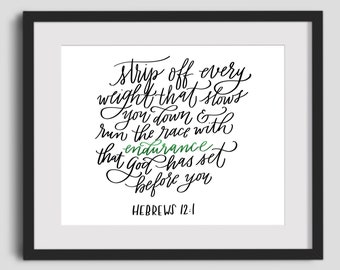 strip off every
weight that slows
you down &
run the race with
endurance
that God has set
before you
HEBREWS 12:1